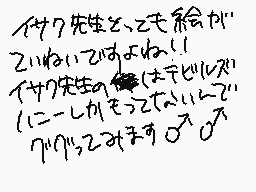 イサク先生とっても絵が
ていねいですよね!!
イサク先生のはデビルズ
ハニーしかもってないんで
ググってみます♂♂